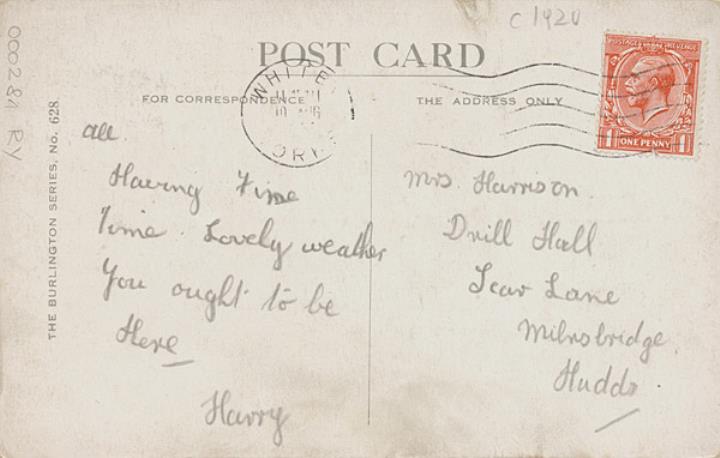 c 1920
000284 RY
THE BURLINGTON SERIES, No. 628.
POST CARD
FOR CORRESPONDENCE
THE ADDRESS ONLY
WHITE
POSTAGE REVENUE
1 ONE PENNY 1
all.
Having Fime
Time. Lovely weather
You ought to be
Here
Harry
Mrs. Harrison.
Drill Hall
Scar Lane
Milnsbridge.
Hudds